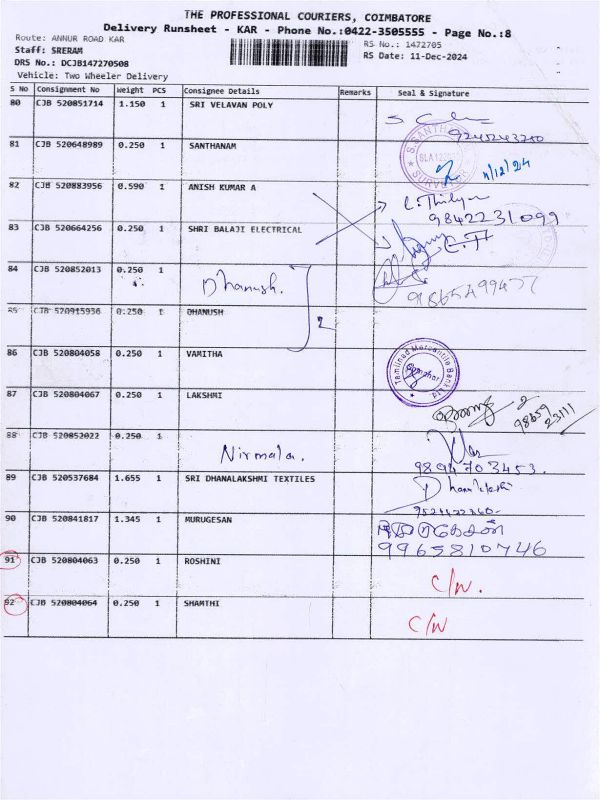 THE PROFESSIONAL COURIERS, COIMBATORE
Delivery Runsheet - KAR - Phone No.:0422-3505555 - Page No.:8
Route: ANNUR ROAD KAR
RS No.: 1472705
Staff: SRERAM
RS Date: 11-Dec-2024
DRS No.: DCJB147270508
Vehicle: Two Wheeler Delivery
S No Consignment No Weight PCS Consignee Details Remarks Seal & Signature
80 CJB 520851714 1.150 1 SRI VELAVAN POLY
9245243250
81 CJB 520648989 0.250 1 SANTHANAM
11/12/24
82 CJB 520883956 0.590 1 ANISH KUMAR A
9842231099
83 CJB 520664256 0.250 1 SHRI BALAJI ELECTRICAL
84 CJB 520852013 0.250 1 Dhanush.
9865499437
85 CJB 520915936 0.250 1 DHANUSH
2
86 CJB 520804058 0.250 1 VAMITHA
Tamilnad Mercantile Bank
87 CJB 520804067 0.250 1 LAKSHMI
98659
23111
88 CJB 520852022 0.250 1 Nirmala.
9894703453.
89 CJB 520537684 1.655 1 SRI DHANALAKSHMI TEXTILES
90 CJB 520841817 1.345 1 MURUGESAN
முருகேசன்
9965810746
91 CJB 520804063 0.250 1 ROSHINI
C/N.
92 CJB 520804064 0.250 1 SHAMTHI
C/N